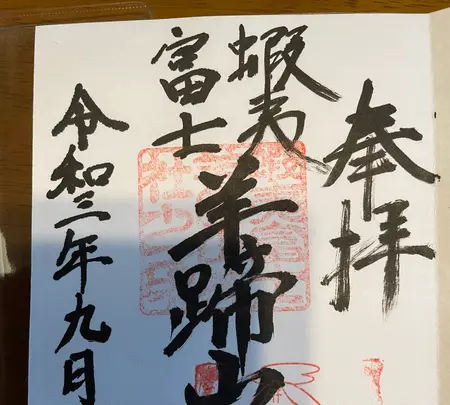 奉拝
蝦夷
富士
羊蹄山
令和三年九月